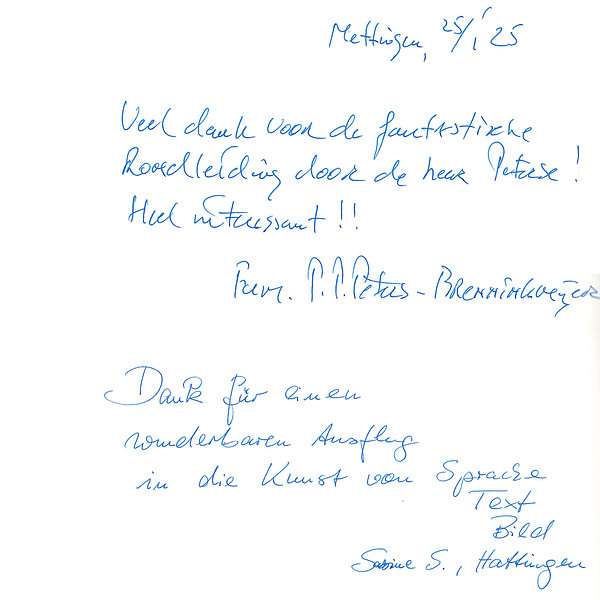 Mettingen, 25/1 25
Veel dank voor de fantastische
Rondleiding door de heer
Heel interessant!!
Fam. P. P. Peters - Brenninkmeijer
Dank für einen
wunderbaren Ausflug
in die Kunst von Sprache
Text
Bild
Sabine S., Hattingen